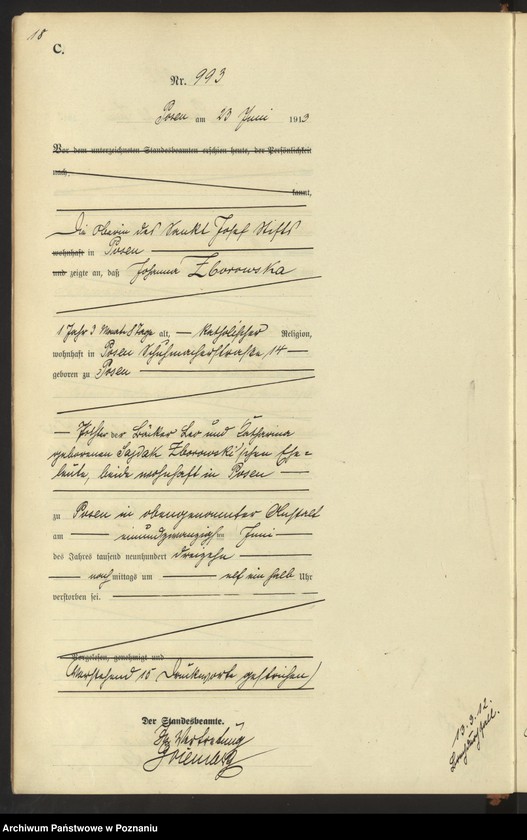 18
C.
Nr. 993
Posen am 23 Juni 1913
Vor dem unterzeichneten Standesbeamten erschien heute, der Persönlichkeit
nach,
kannt,
Die Oberin des Sankt Josef Stifts
wohnhaft in Posen
und zeigte an, daß Johanna Zborowska
1 Jahr 3 Monate 8 Tage alt, katholischer Religion,
wohnhaft in Posen Schuhmacherstraße 14
geboren zu Posen
Tochter der Bäcker Leo und Katharina
geborenen Sajdak Zborowski'schen Ehe=
leute, beide wohnhaft in Posen
zu Posen in obengenannter Anstalt
am einundzwanzigsten Juni
des Jahres tausend neunhundert dreizehn
nachmittags um elf ein halb Uhr
verstorben sei.
Vorgelesen, genehmigt und
Vorstehend 15 Druckworte gestrichen
Der Standesbeamte.
In Vertretung
13.3.12.
Archiwum Państwowe w Poznaniu